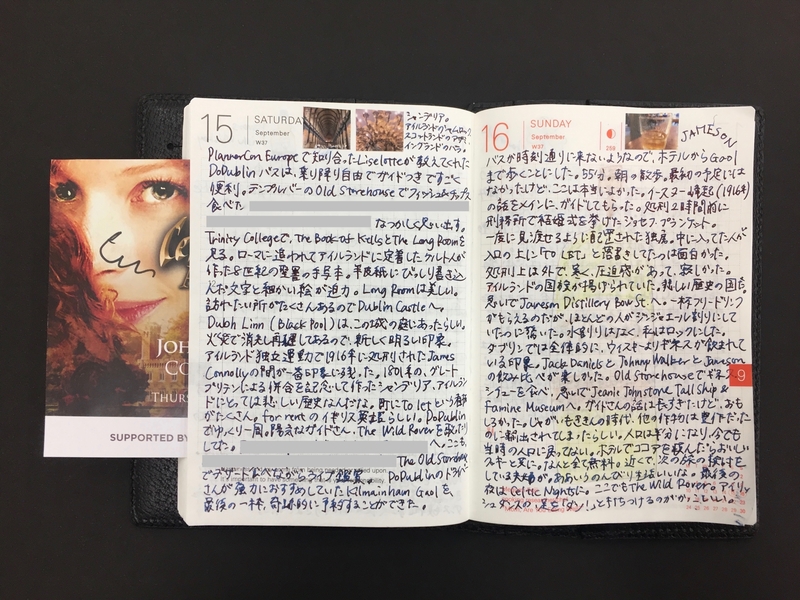 15
SATURDAY
September
W37
シャンデリア。
アイルランドのシャムロック、
スコットランドのアザミ、
イングランドのバラ。
PlannerCon Europeで知り合ったLiselotteが教えてくれた
DoDublinバスは、乗り降り自由でガイドつきですごく
便利。テンプルバーのOld Storehouseでフィッシュ&チップス
食べた
なつかしく思い出す。
Trinity Collegeで、The Book of KellsとThe Long Roomを
見る。ローマに追われてアイルランドに定着したケルト人が
作った8世紀の聖書の手写本。羊皮紙にびっしり書き込
んだ文字と細かい絵が迫力。Long Roomは美しい。
訪れたい所がたくさんあるのでDublin Castleへ。
Dubh Linn (Black Pool)は、この城の庭にあったらしい。
火災で消失し再建してあるので、新しく明るい印象。
アイルランド独立運動で1916年に処刑されたJames
Connollyの間が一番印象に残った。1801年の、グレート
ブリテンによる併合を記念して作ったシャンデリア。アイルラン
ドにとっては悲しい歴史なんだな。町にTo letという看
がたくさん。for rentのイギリス英語らしい。DoDublin
でゆっくり一周。陽気なガイドさん、The Wild Roverを歌ったり
してた。 へ。ここも
The Old Storehouse
でプリート食べながらライブ鑑賞。DoDublinのドライバー
さんが強力におすすめしていたKilmainham Gaolを、
最後の一枠、奇跡的に予約することができた。
JOH
CO
THURS
SUPPORTED BY
16
SUNDAY
September
W37
259
JAMESON
バスが時刻通りに来ないようなので、ホテルからGaol
まで歩くことにした。55分。朝の散歩。最初の予定には
なかったけど、ここは本当によかった。イースター蜂起(1916年)
の話をメインに、ガイドしてもらった。処刑2時間前に
刑務所で結婚式を挙げたジョセフ・プランケット。
一度に見渡せるように配置された独房。中に入ってた人が
入口の上に「TO LET」と落書きしてたのは面白かった。
処刑場は外で、寒く、圧迫感があって、寂しかった。
アイルランドの国旗が掲げられていた。悲しい歴史の国だ。
急いでJameson Distillery Bow St.へ。一杯フリードリンク
がもらえるのだが、ほとんどの人がジンジャエール割りにして
いたのに驚いた。水割りはなく、私はロックにした。
ダブリンでは全体的に、ウイスキーよりギネスが飲まれて
いる印象。Jack DanielsとJohnny WalkerとJameson
の飲み比べが楽しかった。Old Storehouseでギネス
シチューを食べ、急いでJeanie Johnstone Tall Ship &
Famine Museumへ。ガイドさんの話は長すぎたけど、おも
しろかった。じゃがいもききんの時代、他の作物は豊作だった
のに輸出されてしまったらしい。人口は半分になり、今でも
当時の人口に戻ってない。ホテルでココアを頼んだらおいしい
クッキーと共に。なんと全て無料。近くで、次の旅の検討を
している夫婦が。ああいうのんびり生活いいな。最後の
夜はCeltic Nightsに。ここでもThe Wild Rover。アイリッ
シュダンスの、足を「ダン!」と打ちつけるのがかっこいい。
9